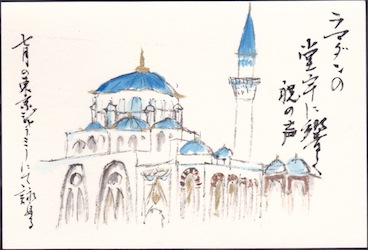 ラマダンの
堂宇に響く
祝の声
七月の東京ジャーミーにて詠める